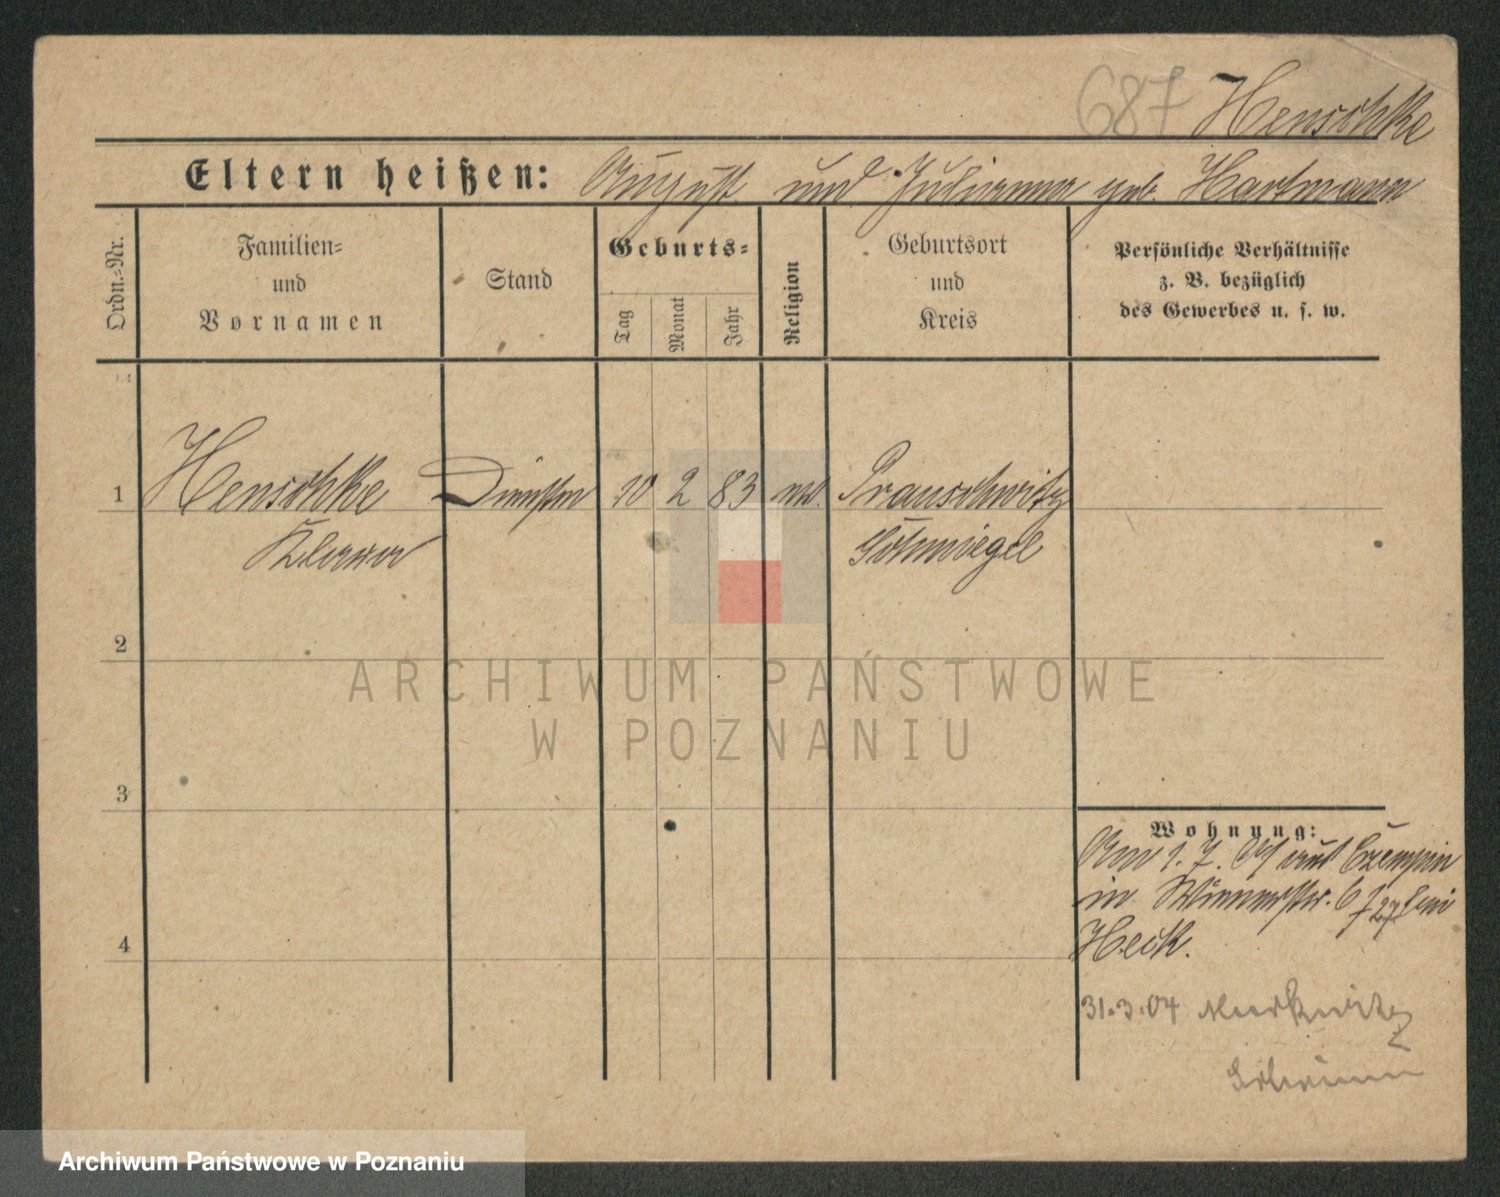 687 Henschke
Eltern heißen: August und Julianna geb. Hartmann
Ordn.-Nr.
Familien-
und
Vornamen
Stand
Geburts-
Tag
Monat
Jahr
Religion
Geburtsort
und
Kreis
Persönliche Verhältnisse
z. B. bezüglich
des Gewerbes u. s. w.
1 Henschke 10 2 83 Prauschwitz
Schmiegel
2
3
4
Wohnung:
Am 1. 7. aus Czempin
in 6 bei
Heck.
31.3.04
ARCHIWUM PAŃSTWOWE
W POZNANIU
Archiwum Państwowe w Poznaniu